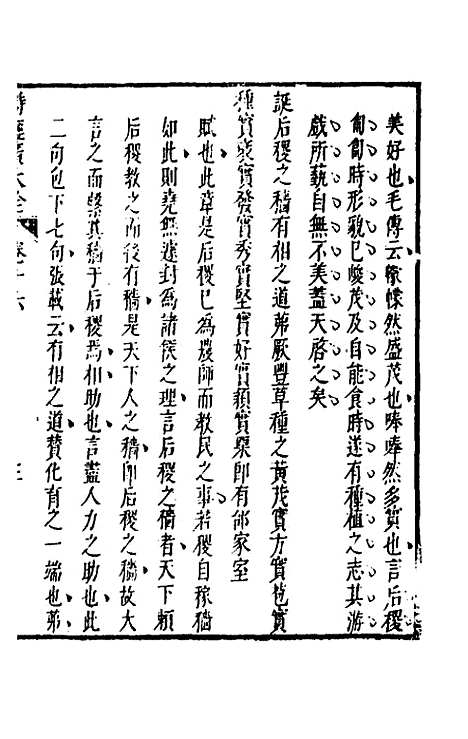 美好也毛傳云幪幪然盛茂也唪唪然多實也言后稷
匍匐時形貌已峻茂及自能食時遂有種植之志其游
戲所蓺自無不美蓋天啓之矣
誕后稷之穡有相之道茀厥豐草種之黃茂實方實苞實
種實褎實發實秀實堅實好實穎實栗即有邰家室
賦也此章是后稷已為農師而教民之事若稷自稼穡
如此則堯無遽封為諸侯之理言后稷之穡者天下賴
后稷教之而後有穡是天下人之穡即后稷之穡故大
言之而槩其穡于后稷焉相助也言盡人力之助也此
二句包下七句張載云有相之道贊化育之一端也茀
詩經廣大全 卷十六